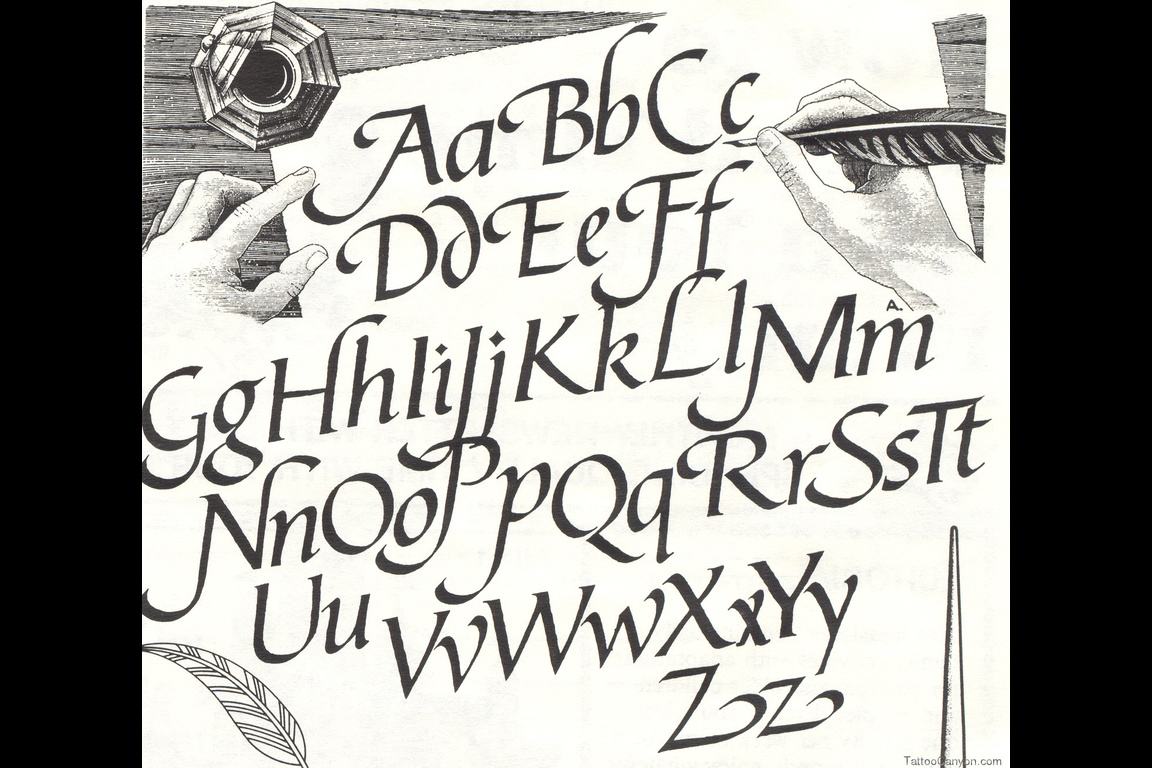 AaBbCc
DdEeFf
A.
GgHhIiJjKkLlMm
NnOoPpQqRrSsTt
UuVvWwXxYy
Zz
TattooCanyon.com